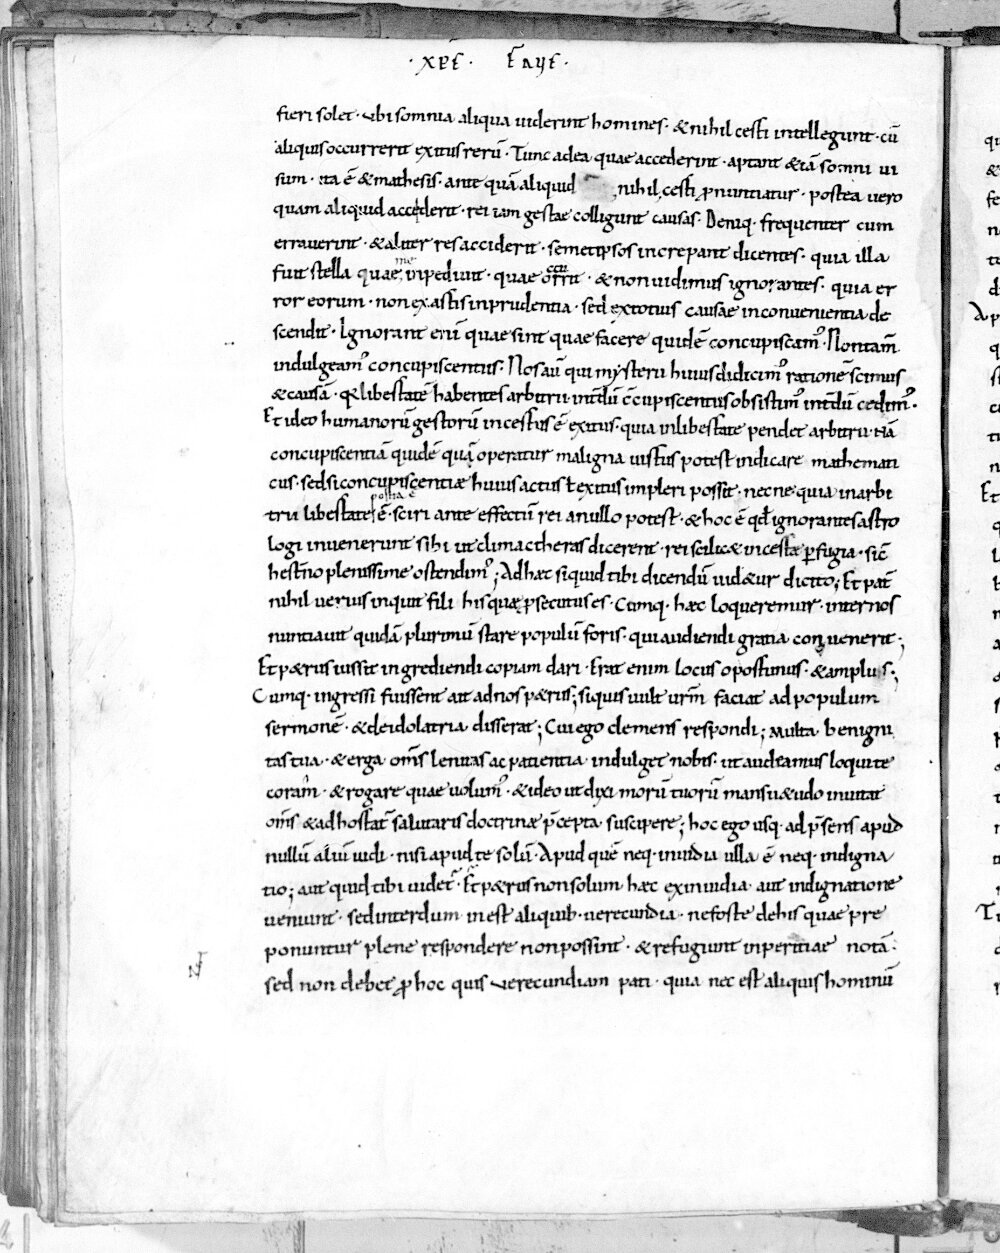 · xpe · fave ·
fieri solet · ubi somnia aliqua uiderint homines · & nihil certi intellegunt · cū
aliquis occurrerit exitus rerū · Tunc ad ea quae accederint · aptant & iā somni ui
sum · ita ē & mathesis · ante quā aliquid nihil certi ꝓnuntiatur · postea uero
quam aliquid accederit · rei iam gestae colligunt causas · Deniq · frequenter cum
errauerint · & aliter res acciderit · semetipsos increpant dicentes · quia illa
fuit stella quae me inpediuit · quae occurrit · & non uidimus ignorantes · quia er
ror eorum · non ex astis inprudentia · sed ex totius causae inconuenientia de
scendit · Ignorant enī quae sint quae facere quidē concupiscam᾽ · Non tam̄
indulgeam᾽ concupiscentiis · Nos aū qui mysterii huius didicim᾽ rationē scimus
& causā · q̄ libertatē habentes arbitrii int̄dū c̄cupiscentiis obsistim᾽ int̄dū cedim᾽ ·
Et ideo humanorū gestorū incertus ē exitus · quia in libertate pendet arbitrii · Nā
concupiscentiā quidē quā operatur maligna uirtus potest indicare mathemati
cus · sed si concupiscentiae huius actus t exitus impleri possit · necne · quia in arbi
trii libertate posita ē · sciri ante effectū rei a nullo potest · & hoc ē qđ ignorantes astro
logi inuenerunt sibi ut climactheras dicerent · rei scilic& incertae ꝑfugia · sic̄
hest̄no plenissime ostendim᾽ ; Ad haec si quid tibi dicendū uid&ur dicito ; Et pat̄
nihil uerius inquit fili his quae ꝑsecutus es · Cumq · haec loqueremur · inter nos
nuntiauit quidā plurimū stare populū foris · qui audiendi gratia conuenerit ;
Et p&rus iussit ingrediendi copiam dari · Erat enim locus oportunus · & amplus ;
Cumq · ingressi fuissent ait ad nos p&rus ; si quis uult ur̄m faciat ad populum
sermonē · & de idolatria disserat ; Cui ego clemens respondi ; Multa benigni
tas tua · & erga om̄s lenitas ac patientia indulget nobis · ut audeamus loqui te
coram · & rogare quae uolum᾽ · & ideo ut dixi morū tuorū mansu&udo inuitat
om̄s & adhortat᾽ salutaris doctrinae p̄cepta suscipere ; hoc ego usq · ad p̄sens apud
nullū aliū uidi · nisi apud te solū · Apud quē neq · inuidia ulla ē neq · indigna
tio ; aut quid tibi uidet᾽ · Et p&rus non solum haec ex inuidia aut indignatione
ueniunt · sed interdum inest aliquib · uerecundia · ne forte de his quae pre
ponuntur plene respondere non possint · & refugiunt inperitiae notā ·
sed non debet ꝓ hoc quis uerecundiam pati · quia nec est aliquis hominū